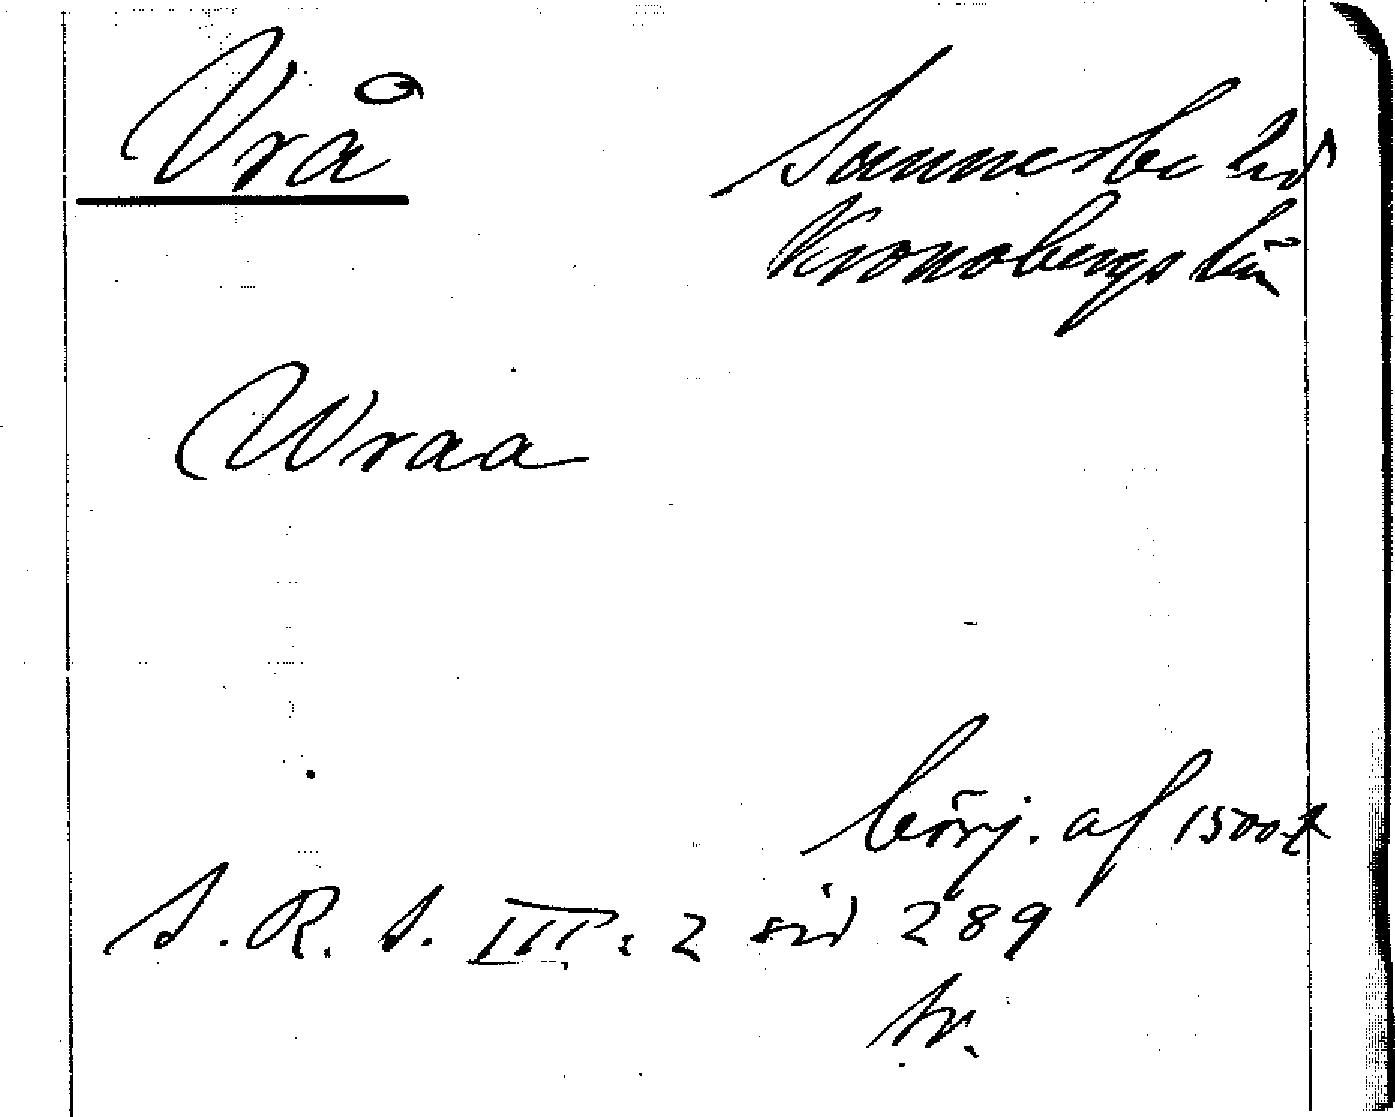 Vrå
Sunnerbo hd
Kronobergs län
Wraa
börj. af 1500-t
S. R. S. III: 2 sid 289
tr.